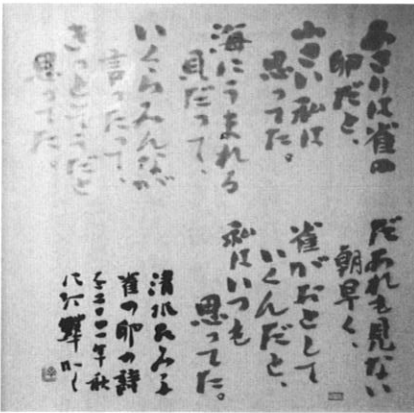 あさりは雀の
卵だと、
小さい私は
思ってた。
海にうまれる
貝だって、
いくらみんなが
言ったって、
きっとそうだと
思ってた。
だあれも見ない
朝早く、
雀がおとして
いくんだと、
私はいつも
思ってた。
清水たみ子
雀の卵の詩
二〇〇一年秋